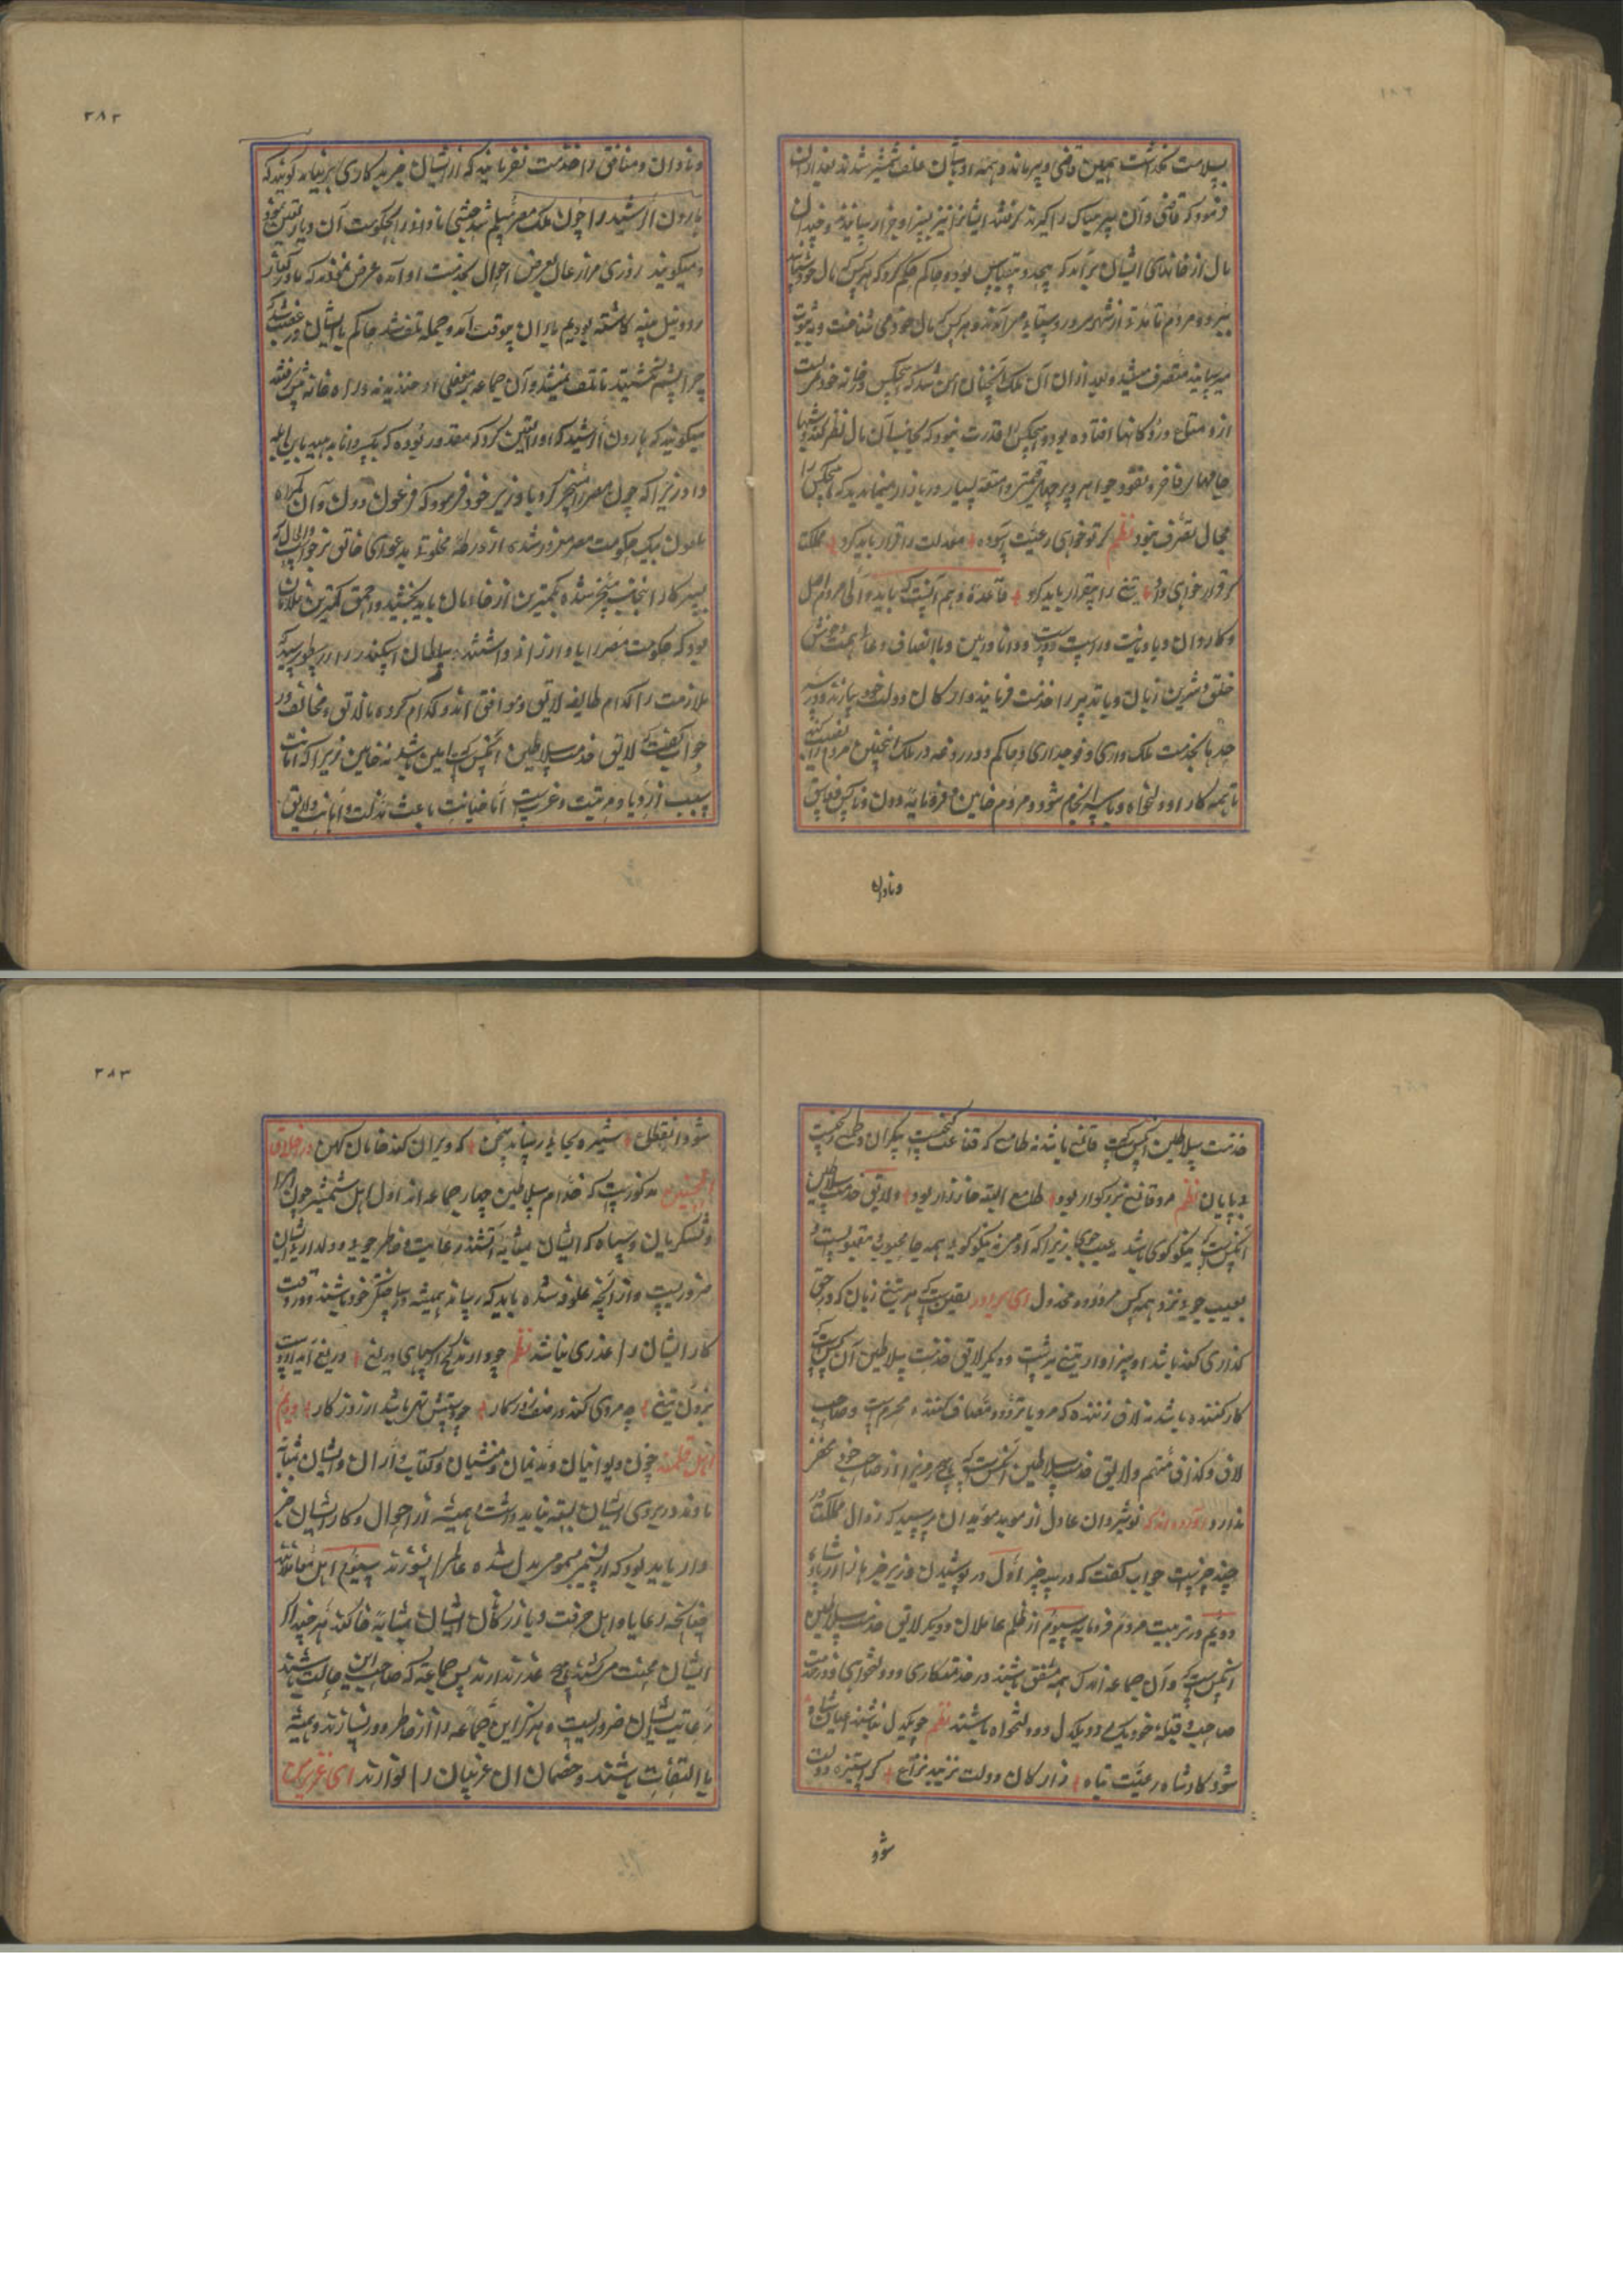 بسلامت نگذاشت همین قاضی و پیر ماند و همه اوباشان علف شمشیر شدند بعد ازان
فرمود که قاضی و آن پیر را گیرند گرفتند ایشانرا نیز بسزا و جزا رسانیدند و چندان
مال از خانهای ایشان برآمد که بیحد و بیقیاس بود و حاکم حکم کرد که هر کس که مال خود شناسد
ببرد و مردم تا مدت از شهر و روستا می آمدند و هر کس که مال خود می شناخت و به ثبوت
میرسانید متصرف میشد و بعد ازان آن ملک آنچنان امن شد که هیچکس در خانه خود نبست
از و متاع در دکانها افتاده بود و هیچکس را قدرت نبود که بجانب آن مال نظر کند و شبها
جامهای فاخره و نقود و جواهر و پرچهای قیمتی و امتعه بسیار در بازار میماندند که هیچکس را
مجال تصرف نبود نظم گر تو خواهی رعیت آسوده معدلت را قرار باید کرد مملکت
گر قرار خواهی داد تیغ را بیقرار باید کرد قاعده دهم آنست که باید والی مردم اصل
و کاردان و با دیانت و راست و درست و دانا و دین و با انصاف و عالی همت و خوش
خلق و شیرین زبان و با تدبیر را خدمت فرمایند و ارکان دولت خود سازند و در سر
حدها بخدمت ملک داری و فوجداری و حاکم و دروغه در ملک اینچنین مردم را تعین کنند
تا همه کار او دولتخواه و با سرانجام شود و مردم خاین و فرومایه و دون و ناکس و فاسق
و نادان
و نادان و منافق را خدمت نفرمایند که از ایشان خیر بد کاری بر نیاید گویند که
هارون الرشید را چون ملک مصر مسلم شد حبشی نادانرا بحکومت آن دیار تعین نمود
و میگویند روزی مزارعان بعرض احوال بخدمت او آمده عرض نمودند که ما در کنار
رود نیل پنبه کاشته بودیم باران بیوقت آمد و جمله تلف شد حاکم با ایشان در غضب شد که
چرا پشم نکشتید تا تلف نمیشد و آن جماعه بر عقلی او خندیدند و راه خانه پیش گرفتند
میگویند که هارون الرشید که او را تعین کرد که مقدور نبوده که یکسر دانا بهم رسد بابی ابله
داد زیرا که چون مصر را مسخر کرد با وزیر خود فرمود که فرعون دون و آن گمراه
ملعون بیک حکومت مصر مغرور شده از ورطهٔ مخلوقیت بدعوای خالق بر خواست والحال که
بسر کار اینجانب مسخر شده بکمترین از خادمان باید بخشید و احمق کمترین غلامان
بود که حکومت مصر را باو ارزانی داشتند سلطان اسکندر را از ارسطو پرسید که
ملازمت را کدام طایفه لایق و موافق اند و کدام گروه نالایق و مخالف در
جواب گفت که لایق خدمت سلاطین آنکس است که امین باشد نه خاین زیرا که امانت
سبب ازدیاد مرتبت و عزت است اما خیانت باعث مذلت و اهانت و لایق
خدمت سلاطین آنکس است که قانع باشد نه طامع که قناعت گنجیست بیکران و طمع رنجیست
بی پایان نظم مرد قانع بزرگوار بود طامع البته خوار زار بود و لایق خدمت سلاطین
آنکس است که نیکوگوی باشد نه عیب جوی زیرا که آدمی نیکوگوی همه جا محبوب و مقبولست
بعیب جوی نزد همه کس مردود و مخذول ای برادر یقین است که هر تیغ زبان که در حق
گذاری کند باشد او سزاوار تیغ بدنست و دیگر لایق خدمت سلاطین آن کس است که
کار کننده باشد نه لاف زننده که مرد با تردد و مصاف کننده محرم است و صاحب
لاف و گزاف متهم و لایق خدمت سلاطین آنکس است که هیچ چیز را از صاحب خود مخفی
ندارد آورده اند که نوشیروان عادل از موبد موبدان پرسید که زوال مملکت در
چند چیزست جواب گفت که در سه چیز اول در پوشیدن وزیر خبرها را از پادشاه
دویم در تربیت مردم فرومایه سیوم از ظلم عاملان و دیگر لایق خدمت سلاطین
آنکس است که و آن جماعه اند که همه متفق باشند در خدمتکاری و دولتخواهی و در خدمت
صاحب و قبله خود یکدل و دولتخواه باشند نظم چو یکدل نباشند اعیان شاه
شود کار شاه و رعیت تباه ز ارکان دولت نزیبد نزاع کز استیزه دولت
شود
شود انقطاع ستیزه بجایی رساند سخن که ویران کند خانمان کهن در اخلاق
المحسنین مذکورست که خدام سلاطین چهار جماعه اند اول اهل شمشیر چون امرا
و لشکریان و سپاه که ایشان بمثابه آتشند رعایت خاطر جویی و دلداری ایشان
ضروریست و از آنچه علوفه شده باید که رساند همیشه و ساختگی خود باشند و در وقت
کار ایشان را عذری نباشد نظم چو دارند گنج از سپاهی دریغ دریغ آیدش دست
بردن به تیغ چه مردی کند در صف کارزار چو دستش تهی باشد از روزگار دویم
اهل قلمند چون دیوانیان و ندیمان و منشیان و کتاب داران و ایشان بمثابه
باد در بروی ایشان بسته نباید داشت همیشه از احوال و کار ایشان خبر
دار باید بود که از نسیم بسموم مبدل شده عالم را نسوزند سیوم اهل معاملتند
چنانچه رعایا و اهل حرفت و بازرگان ایشان بمثابه خاکند هر چند اگر
ایشان محنت میکشند هیچ عذر ندارند پس جماعتی که صاحب این حالت باشند
رعایت ایشان ضروریست و هرگز این جماعه را از خاطر دور نسازند و همیشه
با التفات باشند و خصمان آن عزیزان را نوازند ای عزیز من